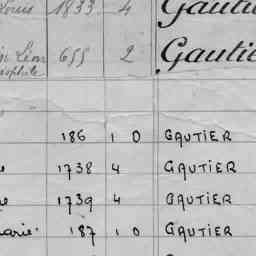 Louis 1833 4 Gautier
in Léon 655 2 Gautier
osophile
186 1 0 GAUTIER
e 1738 4 GAUTIER
e 1739 4 GAUTIER
arie. 187 1 0 GAUTIER